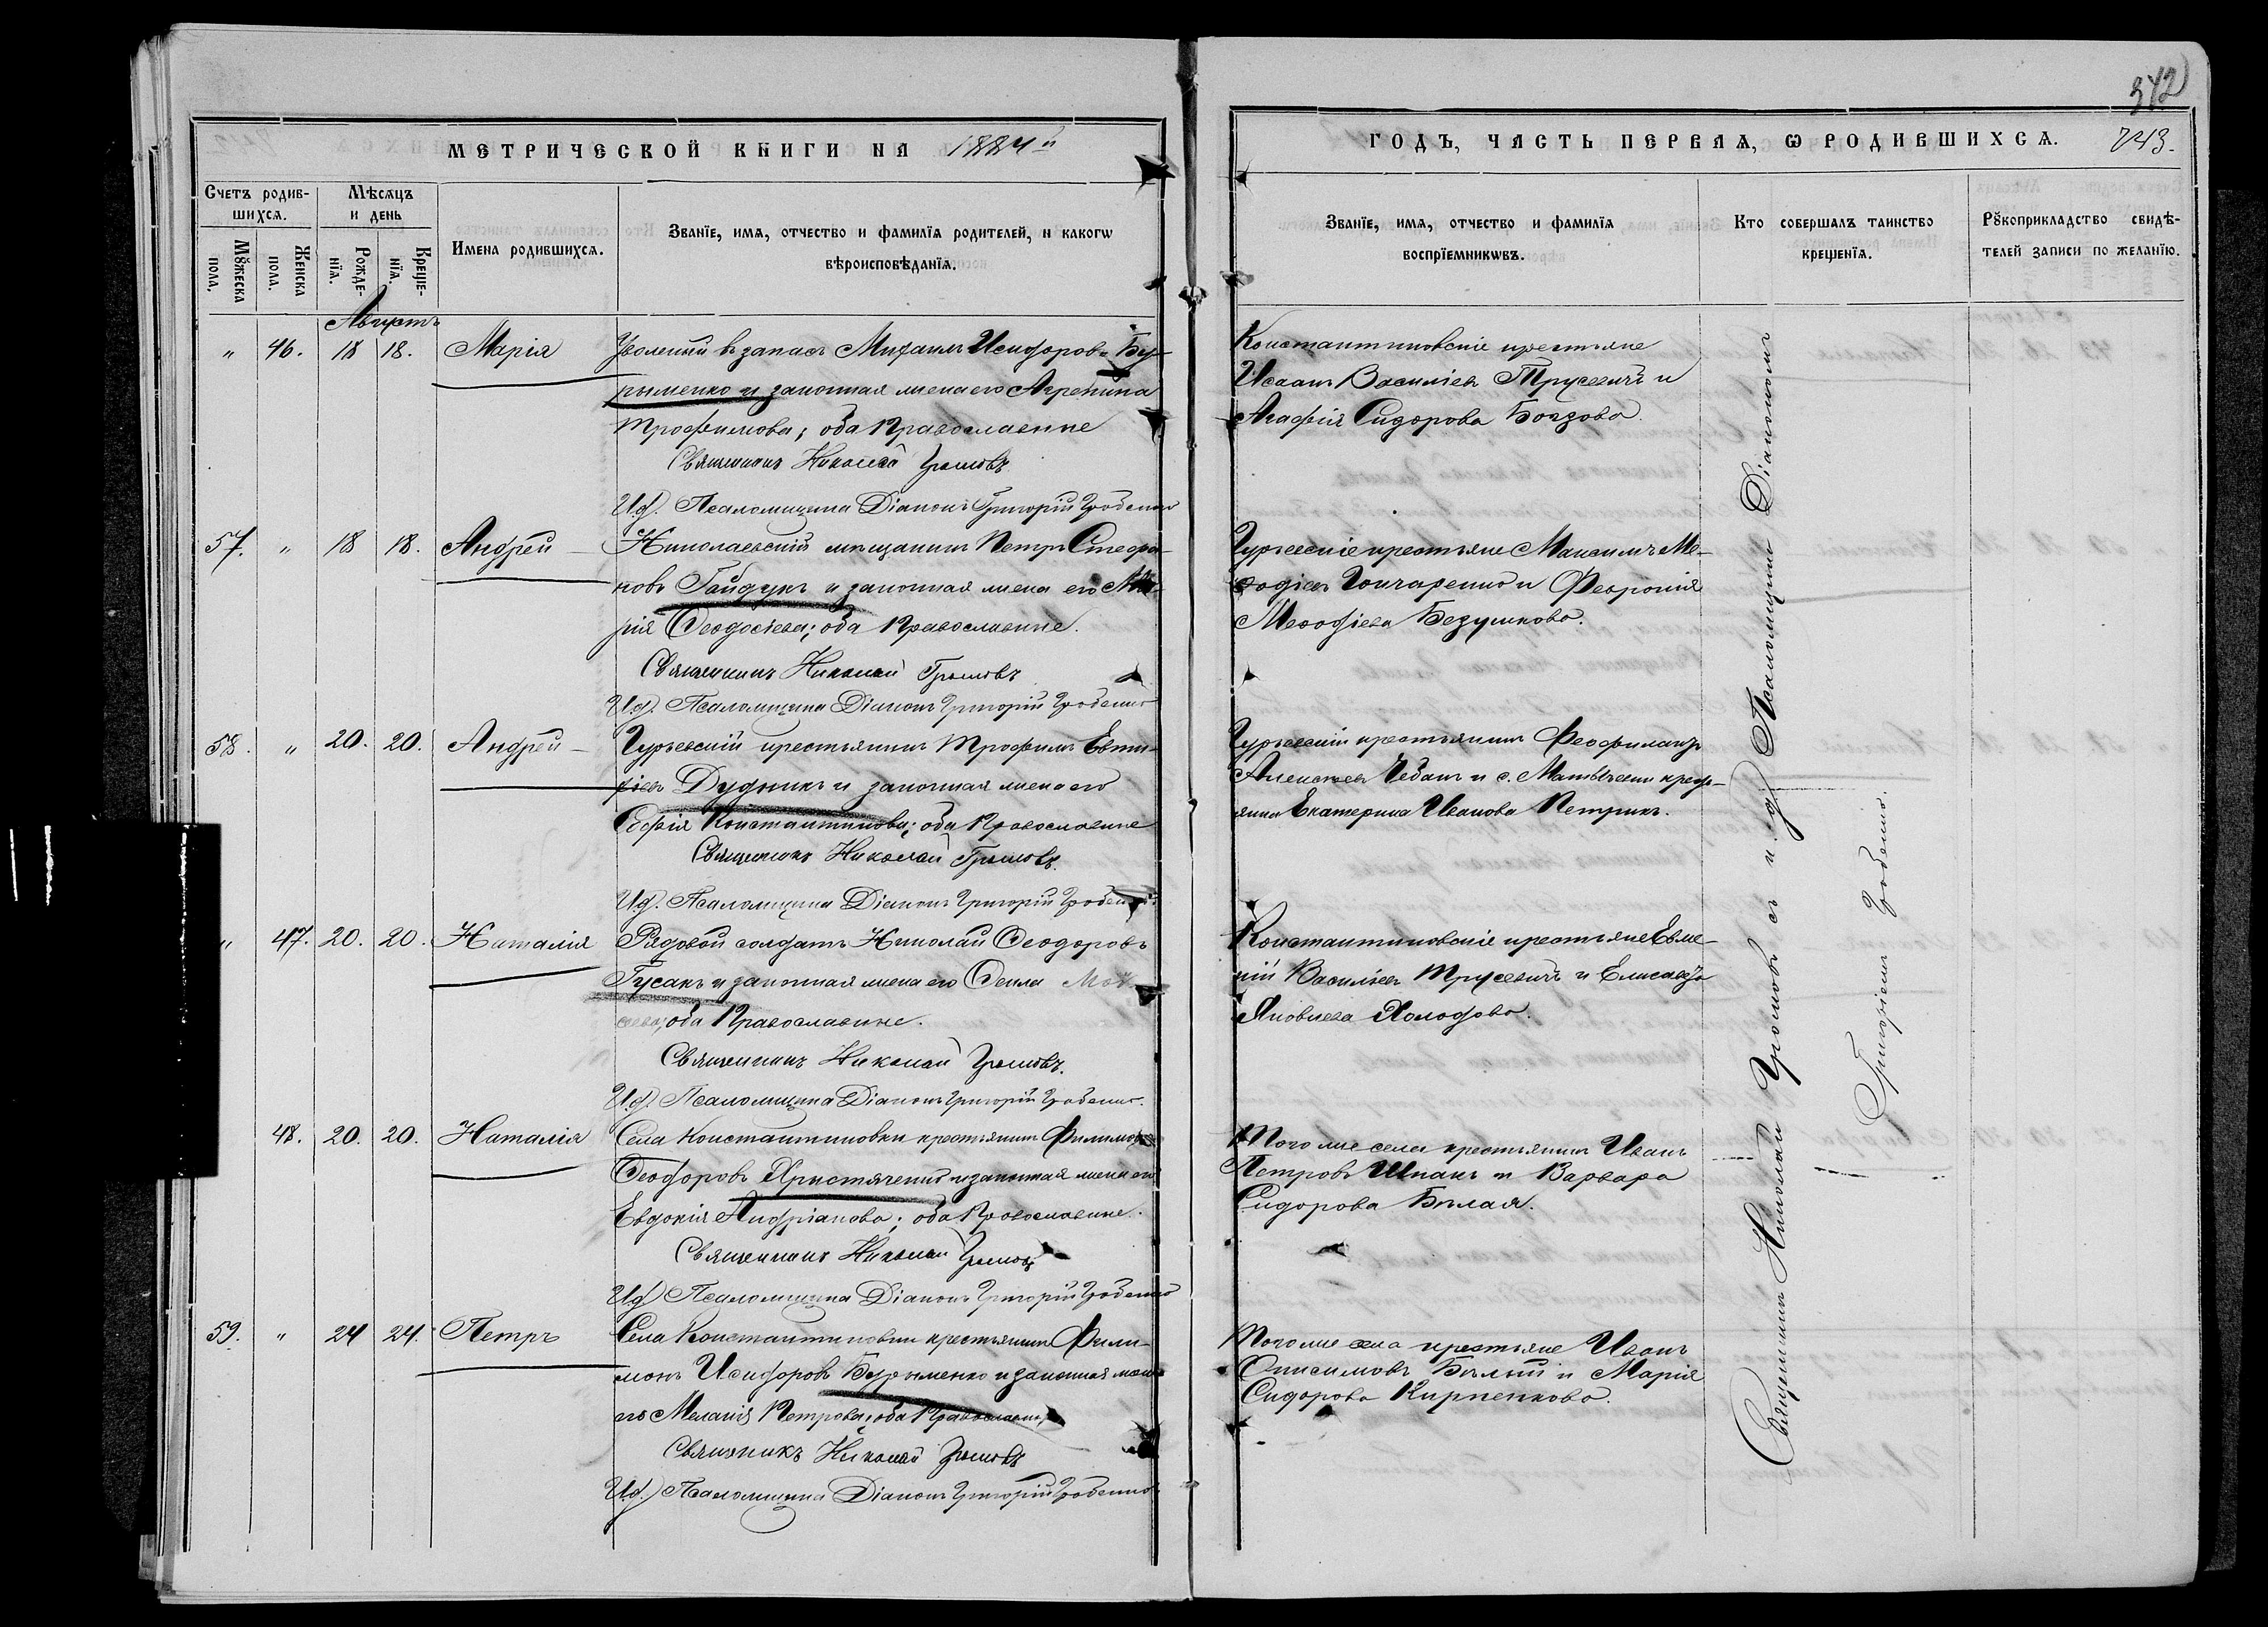 342
МЕТРИЧЕСКОЙ КНИГИ НА 1884й
ГОДЪ, ЧАСТЬ ПЕРВАѦ, Ѡ РОДИВШИХСѦ. 743.
Счетъ родив-
шихсѧ.
Мѣсѧцъ
и день
Мꙋжеска
пола.
Женска
пола.
Рожде-
нїѧ.
Креще-
нїѧ.
Имена родившихсѧ.
Званїе, имѧ, отчество и фамилїѧ родителей, и какогѡ
вѣроисповѣданїѧ.
Званїе, имѧ, отчество и фамилїѧ
воспрїемникѡвъ.
Кто совершалъ таинство
крещенїѧ.
Рꙋкоприкладство свидѣ-
телей записи по желанїю.
Августъ
" 46. 18 18. Марія
Уволеный въ запасъ Михаилъ Исидоровъ Бу-
рыменко и законная жена его Агрепина
Трофимова; оба Православные
Священникъ Николай Громовъ
И.д. Псаломщика Діаконъ Григорій
Константиновскіе крестьяне
Исаакъ Василіевъ Трусевичъ и
Агафія Сидорова
57. " 18 18. Андрей
Николаевскій мѣщанинъ Петръ Стефа-
новъ Гайдукъ и законная жена его Ма-
рія Ѳеодосіева; оба Православные.
Священникъ Николай Громовъ
И.д. Псаломщика Діаконъ Григорій
Гурьевскіе крестьяне Максимъ Ме-
ѳодіевъ Гончаренко и Февронія
Меѳодіева
58. " 20. 20. Андрей
Гурьевскій крестьянинъ Трофимъ Евти-
фіевъ Дудникъ и законная жена его
Софія Константинова; оба Православные
Священникъ Николай Громовъ.
И.д. Псаломщика Діаконъ Григорій
Гурьевскій крестьянинъ Феофилактъ
Алексѣевъ Чебанъ и с. Матвѣевки крест-
янка Екатерина Иванова Петрикъ.
" 47. 20. 20. Наталія
Рядовой солдатъ Николай Ѳеодоровъ
Гусакъ и законная жена его Ѳекла
оба Православные.
Священникъ Николай Громовъ.
И.д. Псаломщика Діаконъ Григорій
Константиновскіе крестьяне Евме-
ній Василіевъ Трусевичъ и Елисавета
Яковлева Холодова.
48. 20. 20. Наталія
Села Константиновки крестьянинъ Филимонъ
Ѳеодоровъ Христяченко и законная жена его
Евдокія Андріанова; оба Православные.
Священникъ Николай Громовъ
И.д. Псаломщика Діаконъ Григорій
Того же села крестьянинъ Иванъ
Петровъ Шпакъ и Варвара
Сидорова Бѣлая.
59. " 24 24. Петръ
Села Константиновки крестьянинъ Фили-
монъ Исидоровъ Бурыменко и законная жена
его Меланія Петрова; оба Православные
Священникъ Николай Громовъ
И.д. Псаломщика Діаконъ Григорій
Того же села крестьяне Иванъ
Онисимовъ Бѣлый и Марія
Сидорова Кирпенкова.
Священникъ Николай Громовъ съ и. д. Псаломщика Діакономъ
Григоріемъ